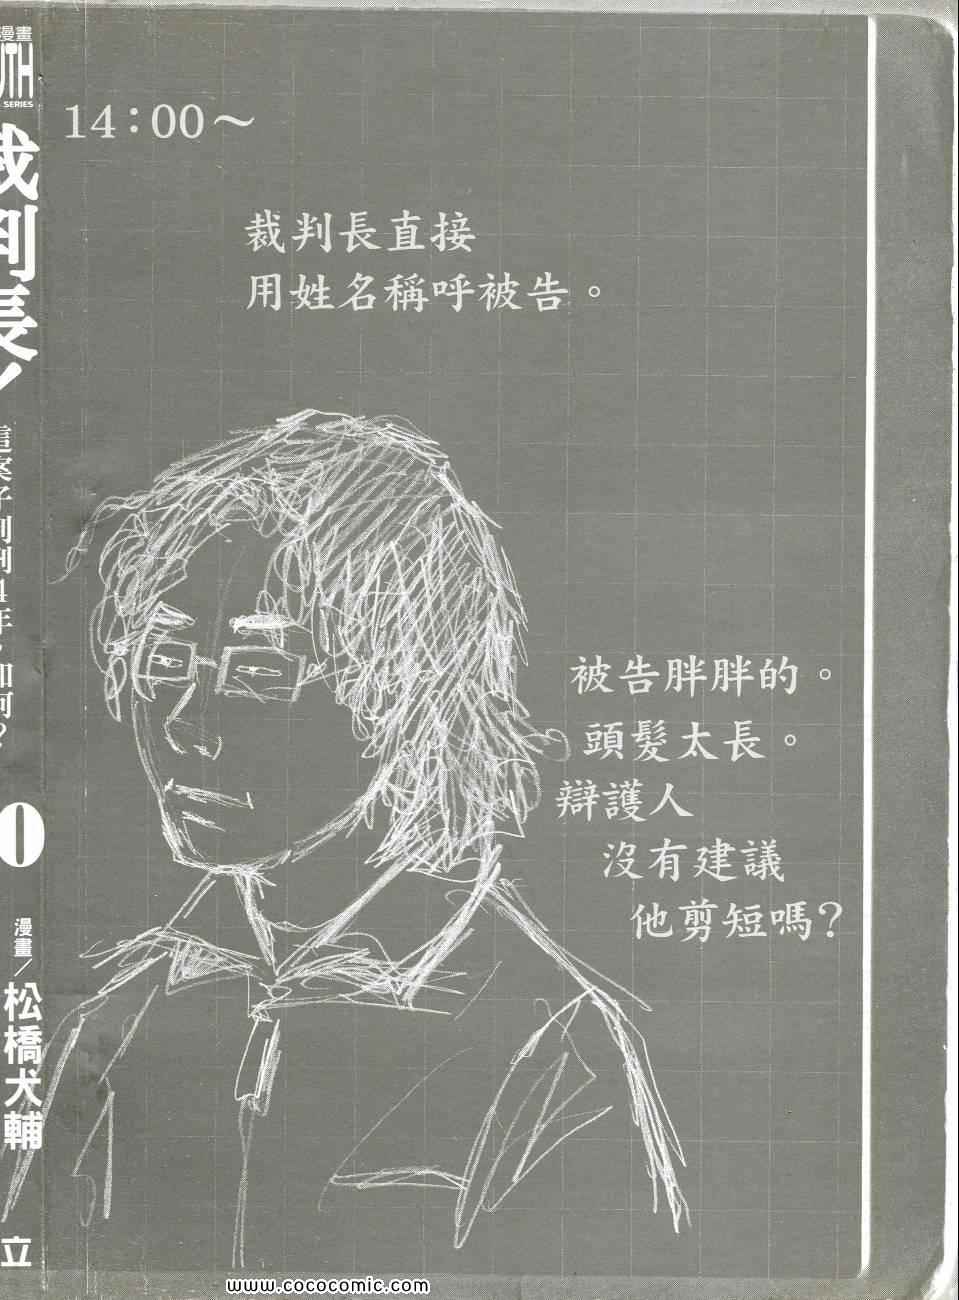 漫畫
SERIES
裁判長！
這案子判刑4年，如何？
0
漫畫／松橋犬輔
立
14：00～
裁判長直接
用姓名稱呼被告。
被告胖胖的。
頭髮太長。
辯護人
沒有建議
他剪短嗎？
www.cococomic.com